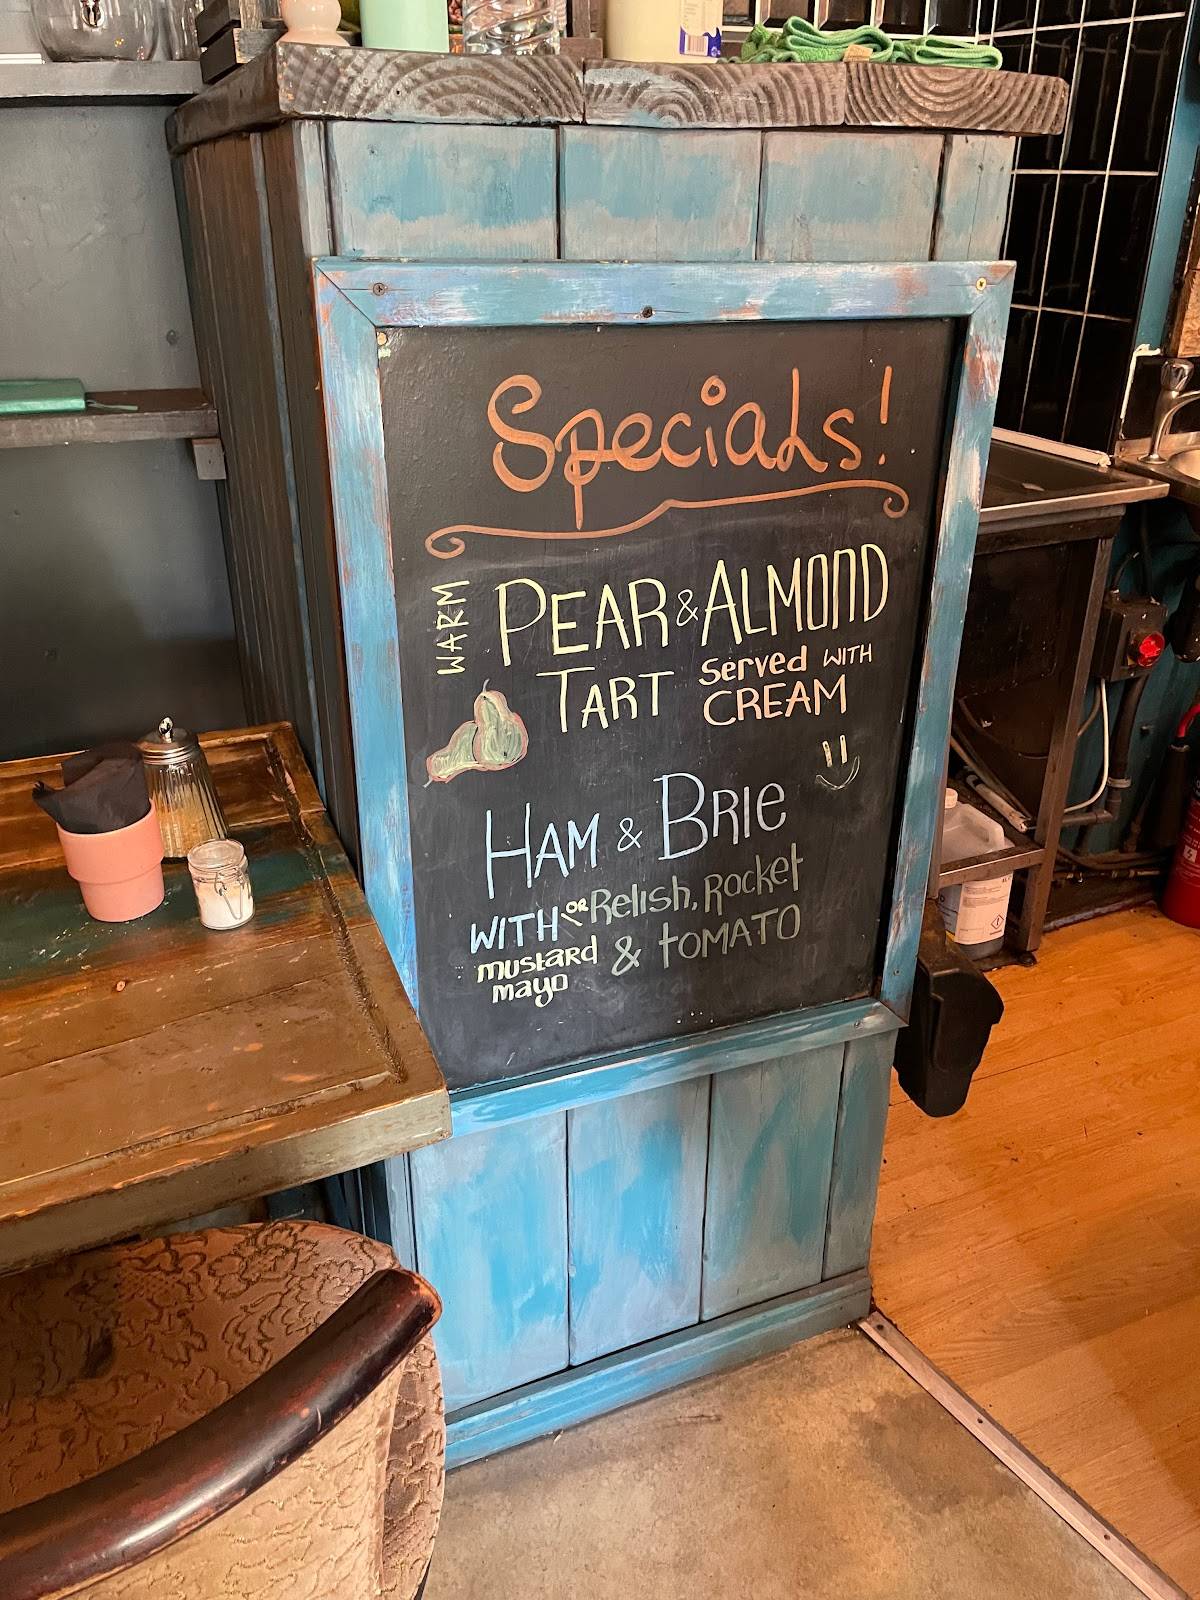 Specials!
WARM
PEAR & ALMOND
TART served WITH
CREAM
HAM & BRIE
WITH OR Relish, Rocket
mustard & tOMATO
mayo